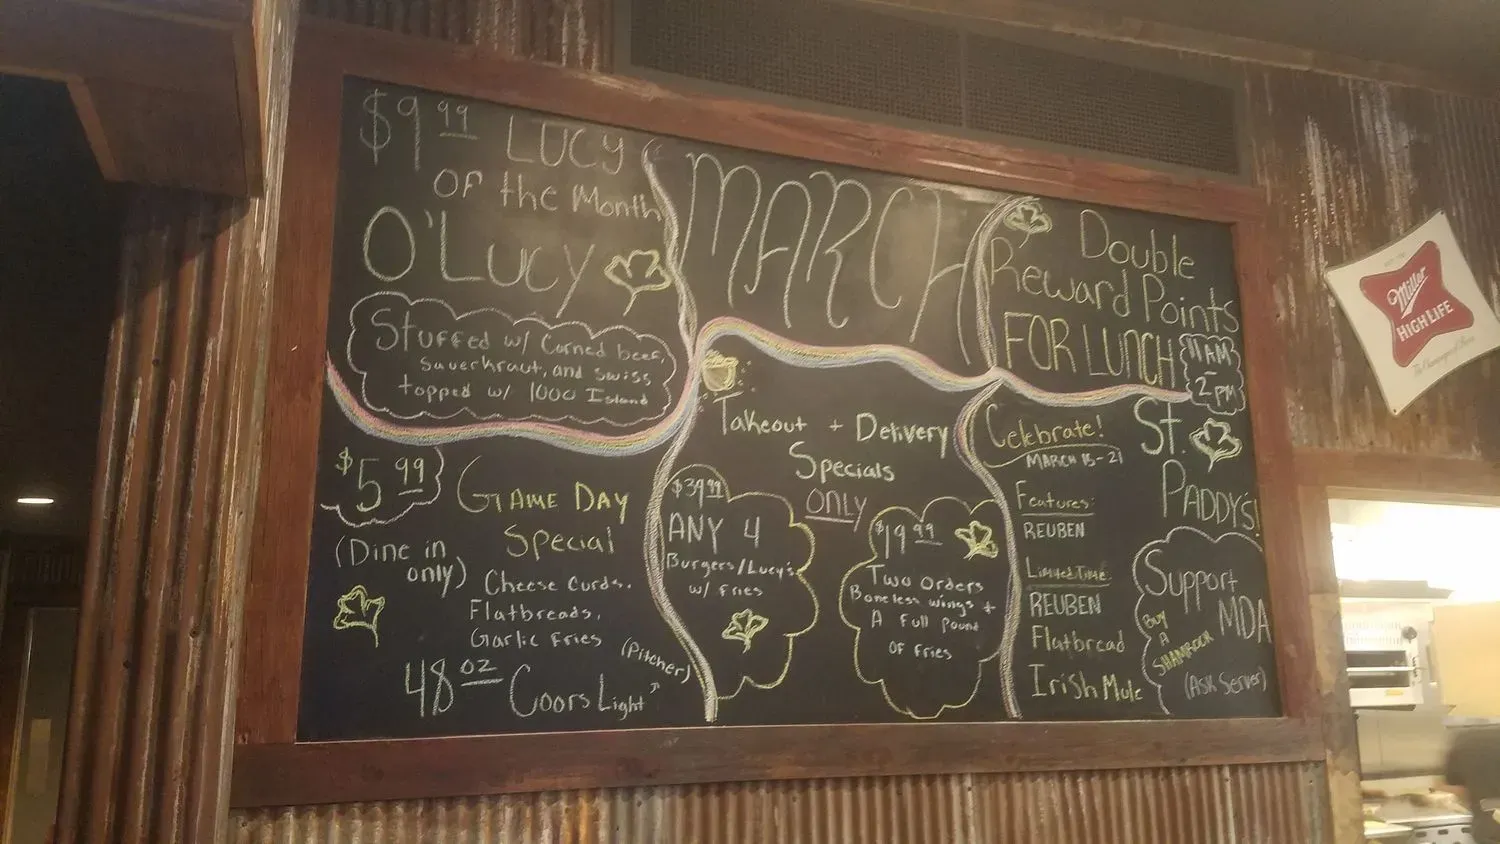 $9.99 LUCY
OF the Month
O'LUCY
Stuffed w/ Corned beef,
Sauerkraut, and Swiss
topped w/ 1000 Island
MARCH
Double
Reward Points
FOR LUNCH
11AM-
2-PM
$5.99
GAME DAY
Special
(Dine in
only)
Cheese Curds.
Flatbreads,
Garlic Fries
(Pitcher)
48 oz Coors Light
Takeout + Delivery
Specials
ONLY
$39.99
ANY 4
Burgers/Lucy's
w/ Fries
$19.99
Two Orders
Boneless wings +
A full pound
OF Fries
Celebrate!
MARCH 15-21
St.
PADDY'S!
Features:
REUBEN
Limited Time:
REUBEN
Flatbread
Irish Mule
Support
MDA
BUY
A
SHAMROCK
(Ask Server)
Miller
HIGH LIFE